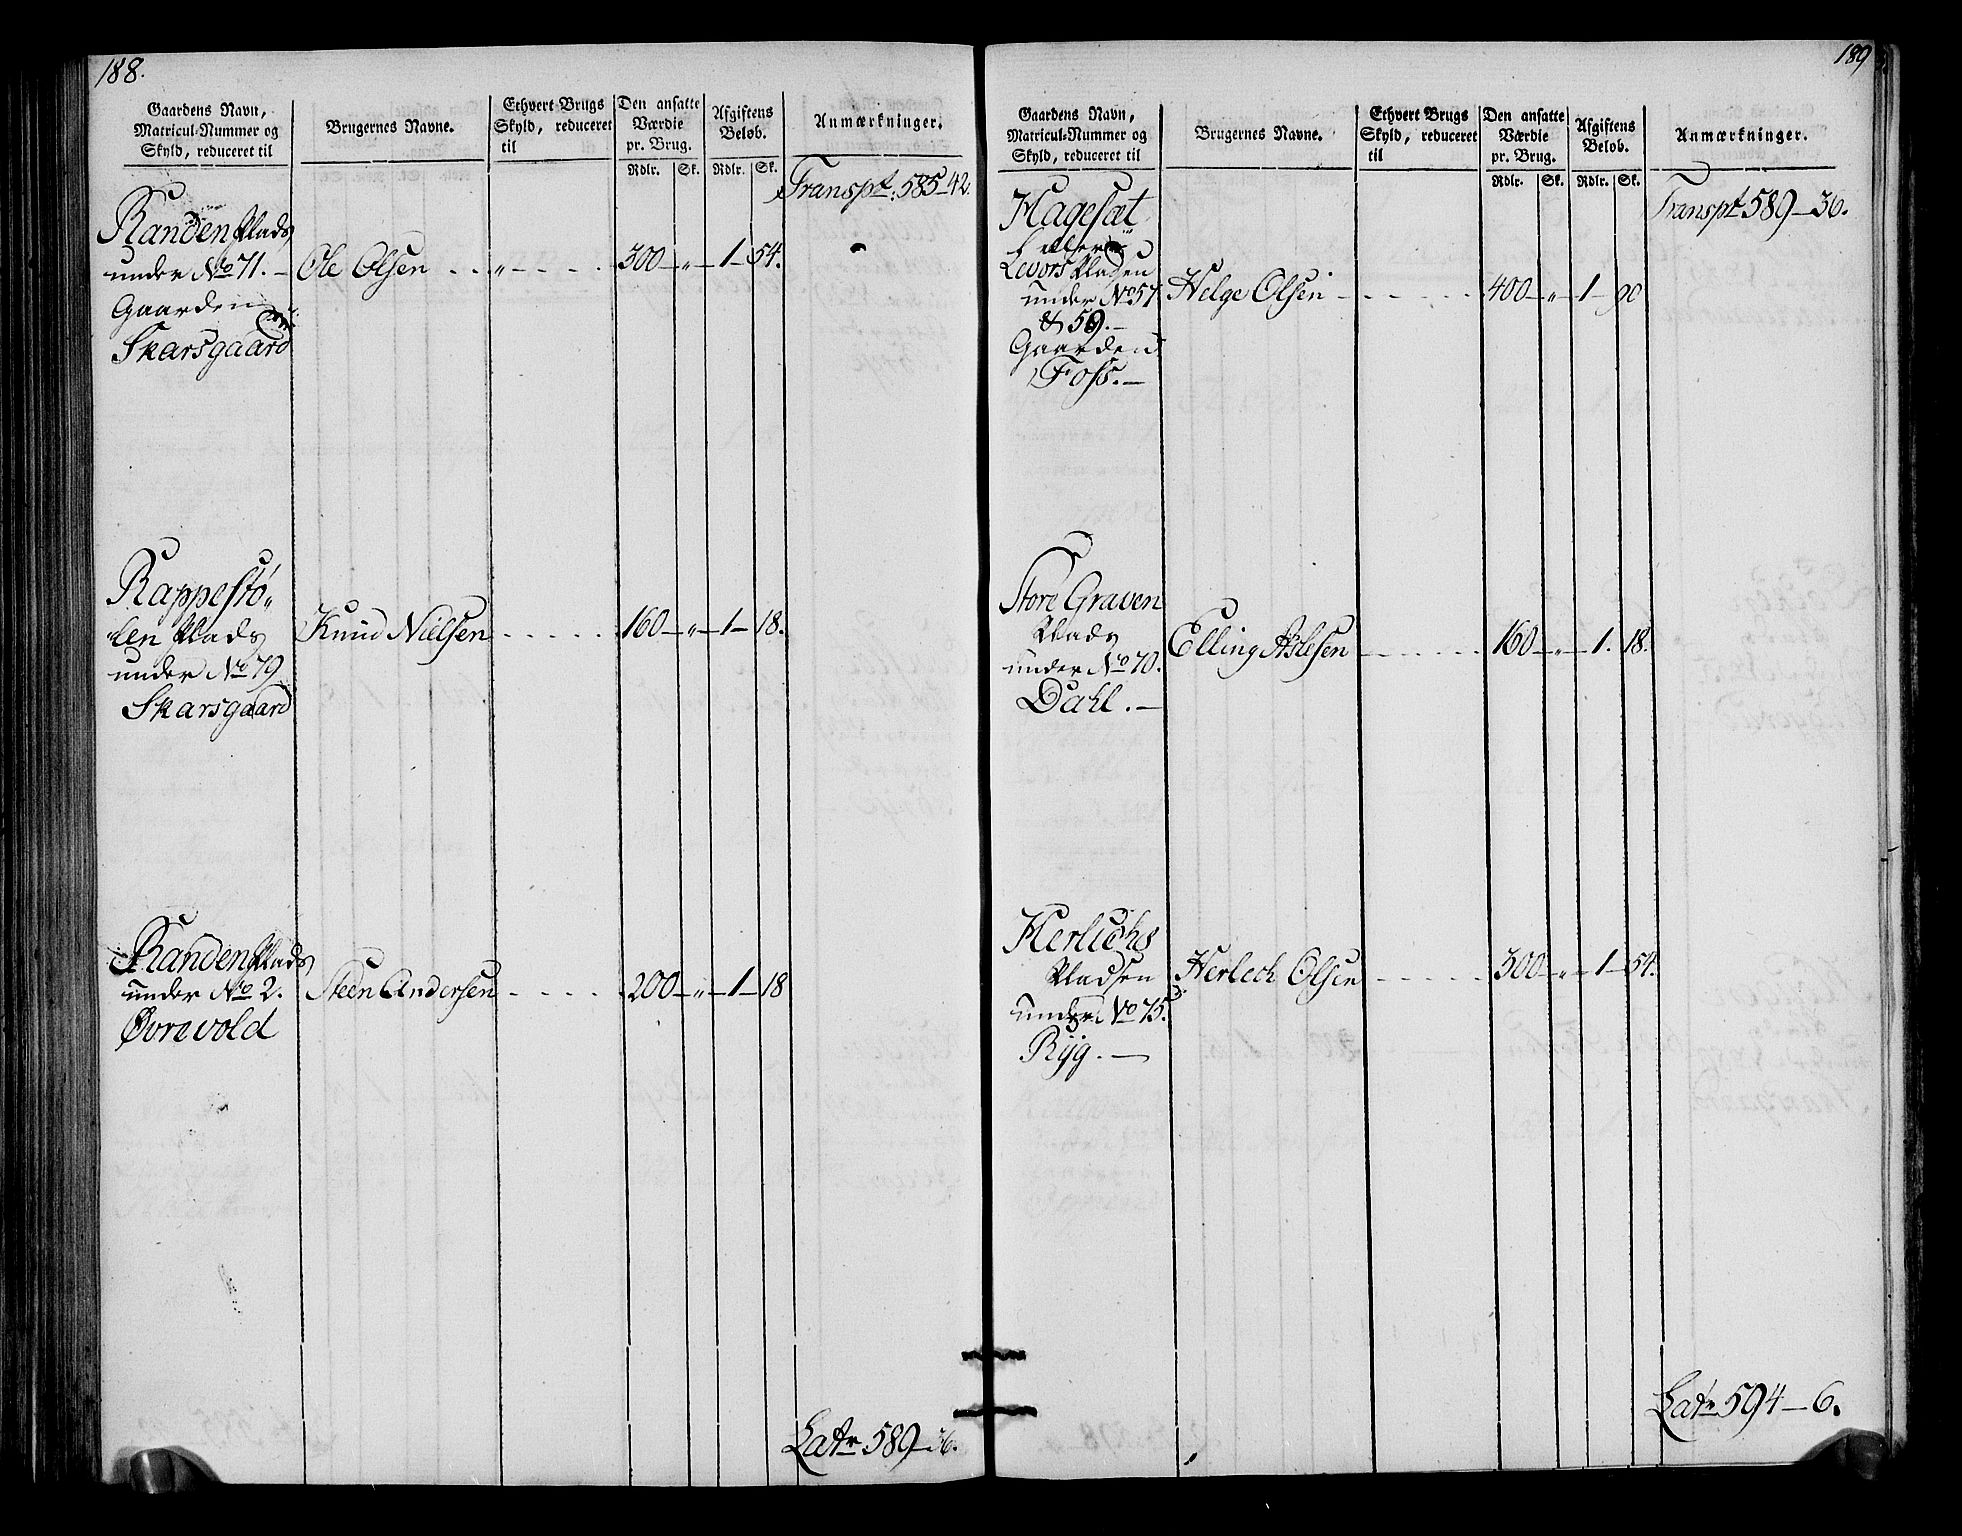 188.
Gaardens Navn, Matricul-Nummer og Skyld, reduceret til | Brugernes Navne. | Ethvert Brugs Skyld, reduceret til | Den ansatte Værdie pr. Brug. | Afgiftens Beløb. | Anmærkninger.
Rdlr. Sk. Rdlr. Sk.
Transpt: 585-42.
Randen Plads
under No 71. - Ole Olsen - - „ - - - 300 - „ - 1 - 54.
Gaarden
Skarsgaard
Rappestø„
len Plads Knud Nielsen - - - - - 160 - „ - 1 - 18.
under No 79
Skarsgaard
Randen Plads
under No 2. Steen Andersen - - - - 200 - „ - 1 - 18
Øvrevold
Latr 589-36.
189
Gaardens Navn, Matricul-Nummer og Skyld, reduceret til | Brugernes Navne. | Ethvert Brugs Skyld, reduceret til | Den ansatte Værdie pr. Brug. | Afgiftens Beløb. | Anmærkninger.
Rdlr. Sk. Rdlr. Sk.
Transpt 589-36.
Hagesæt
eller
Levors Pladsen
under No 57 Helge Olsen - - - - - 400 - „ - 1 - 90
& 59. -
Gaarden
Foss. -
Store Graven
Plads Elling Aslesen - - - - - 160 - „ - 1. 18.
under No 70.
Dahl. -
Herlichs
Pladsen Herlech Olsen - - - - - 300 - „ - 1 - 54.
under No 75.
Ryg. -
Latr 594-6.